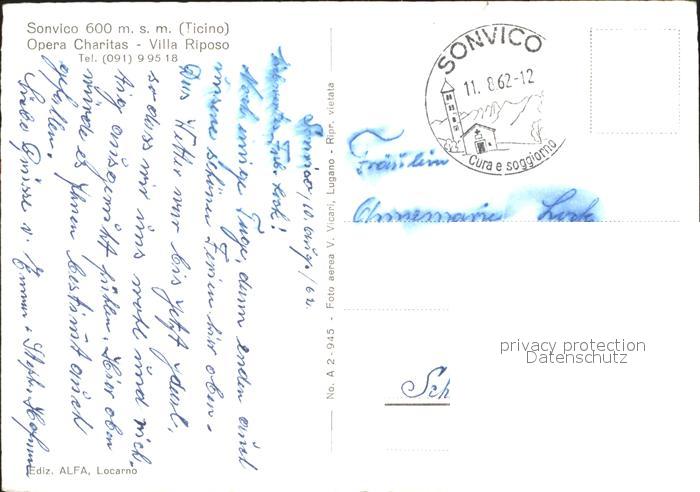 Sonvico 600 m. s. m. (Ticino)
Opera Charitas - Villa Riposo
Tel. (091) 9 95 18
Sonvico, 10. Aug. / 62.
Noch einige Tage, dann enden auch
unsere schönen Ferien hier oben.
Das Wetter war bis jetzt ideal,
so dass wir uns wohl und rich-
tig ausgeruht fühlen. Hier oben
würde es Ihnen bestimmt auch
gefallen.
Liebe Grüsse v. Emmy +
Ediz. ALFA, Locarno
No. A 2-945 - Foto aerea V. Vicari, Lugano - Ripr. vietata
SONVICO
11.8.62-12
Cura e soggiorno
Fräulein
Annemarie
Sch
privacy protection
Datenschutz